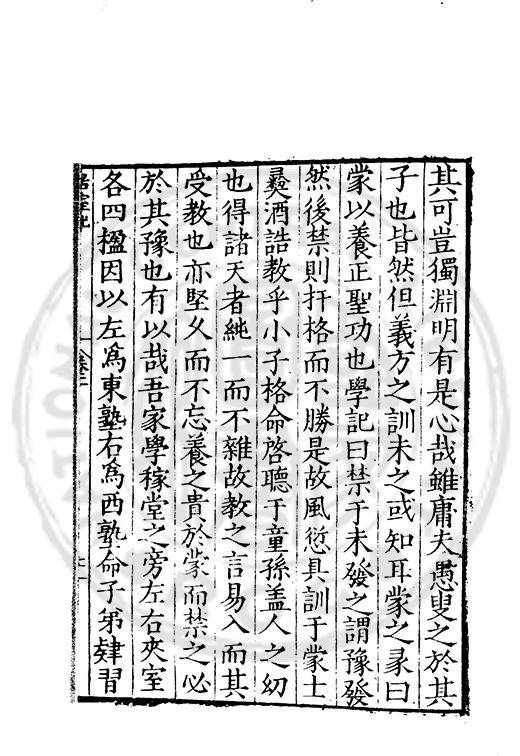 其可豈獨淵明有是心哉雖庸夫愚叟之於其
子也皆然但義方之訓未之或知耳蒙之彖曰
蒙以養正聖功也學記曰禁于未發之謂豫發
然後禁則扞格而不勝是故風愆具訓于蒙士
彛酒誥教乎小子格命啓聽于童孫盖人之幼
也得諸天者純一而不雜故教之言易入而其
受教也亦堅久而不忘養之貴於蒙而禁之必
於其豫也有以哉吾家學稼堂之旁左右夾室
各四楹因以左爲東塾右爲西塾命子弟肄習
卷二